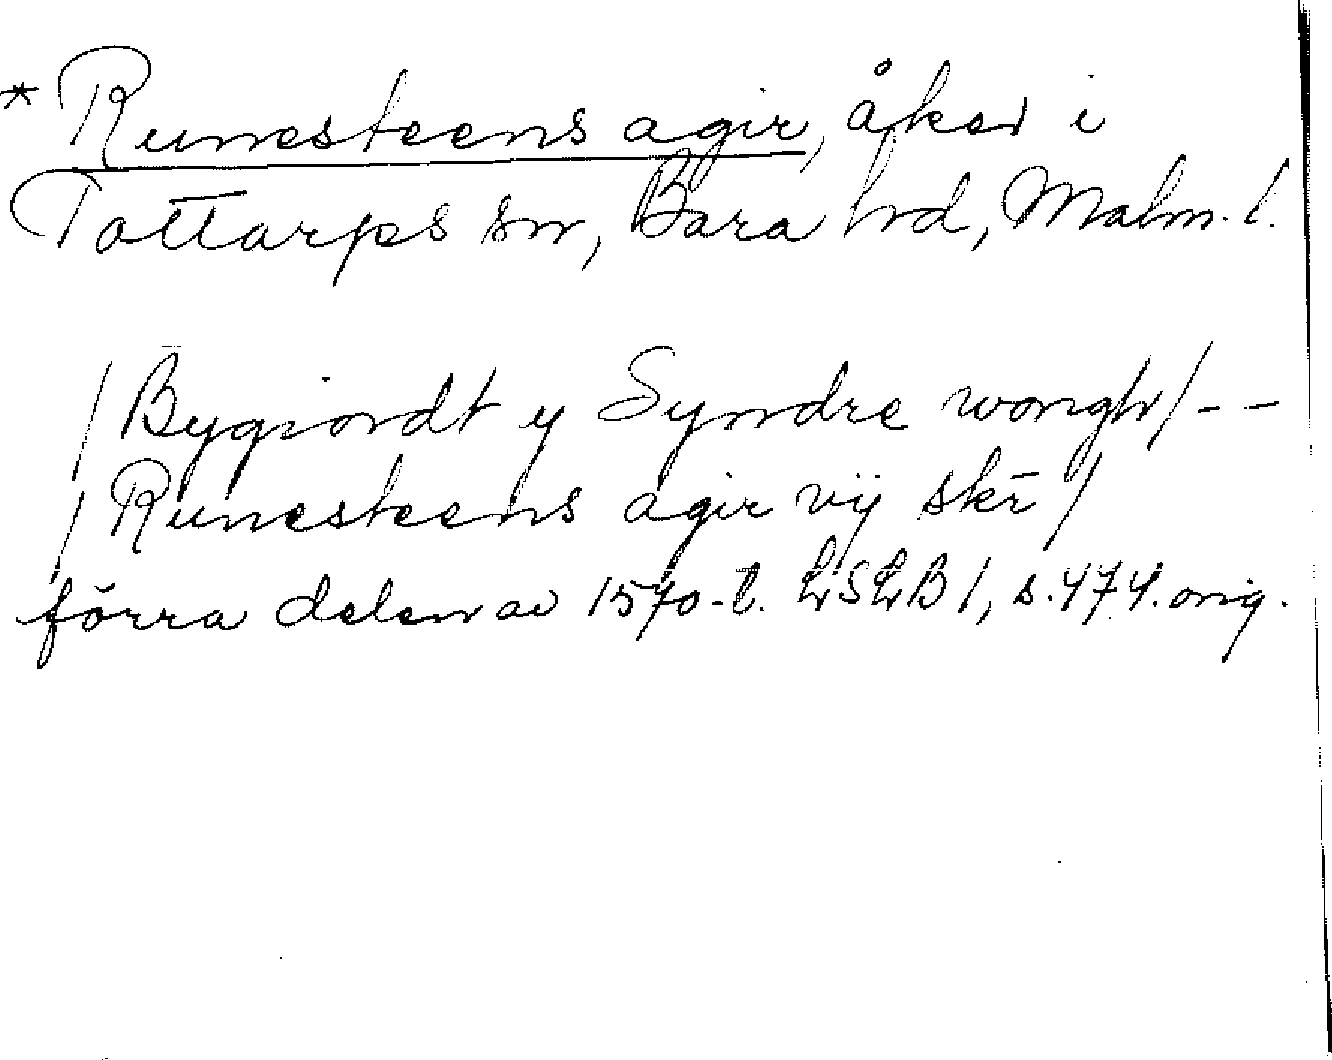 * Runesteens agir, åker i
Tottarps sn, Bara hd, Malm. l.
/Bygiordt y Syndre wongh/ - -
/Runesteens agir vij skr̄/
förra delen av 1570-t. LSLB 1, s. 474. orig.